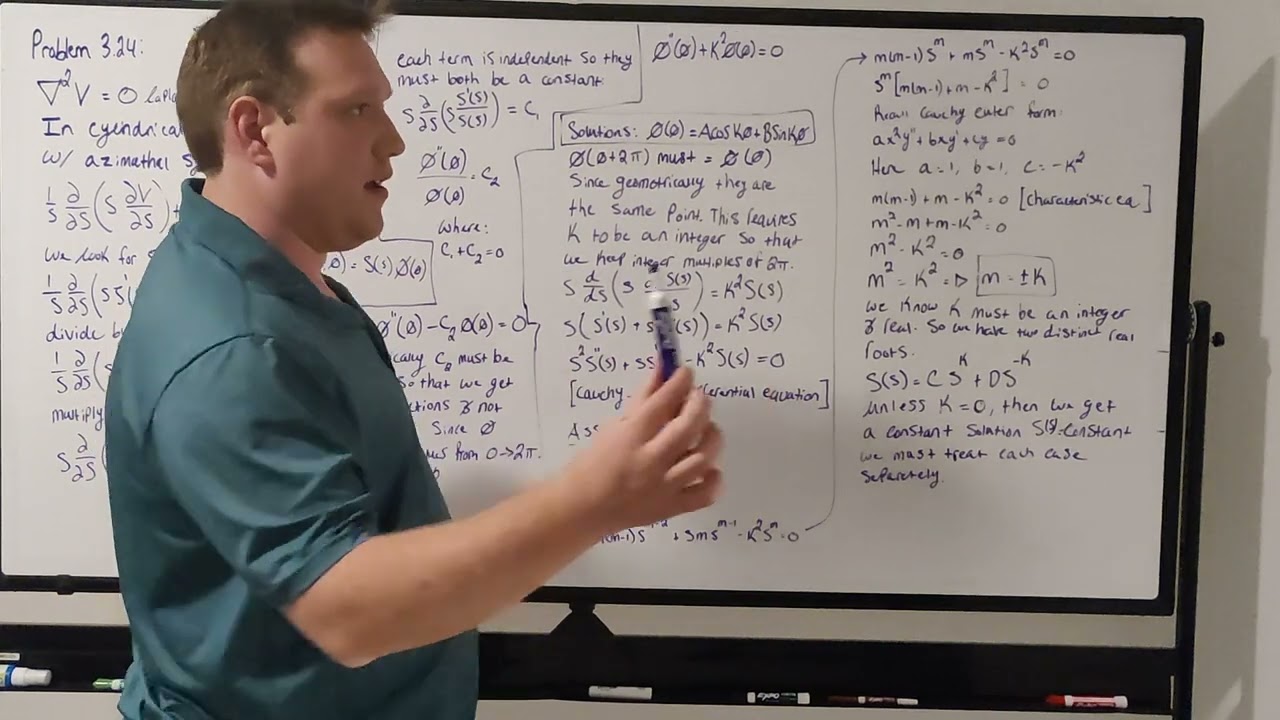 Problem 3.24:
∇²V = 0
In cylindrical
w/ azimuthal
1/S ∂/∂S (S ∂V/∂S) +
we look for
1/S ∂/∂S (S S'
divide b
1/S ∂/∂S (S
multiply
S ∂/∂S (
each term is independent so they
must both be a constant.
S ∂/∂S (S S'(S)/S(S)) = C₁
Ø''(Ø)/Ø(Ø) = C₂
where:
C₁+C₂=0
) = S(S) Ø(Ø)
Ø''(Ø) - C₂ Ø(Ø) = 0
C₂ must be
so that we get
ctions & not
Since Ø
from 0→2π.
Ø''(Ø) + K²Ø(Ø) = 0
Solutions: Ø(Ø) = A cos KØ + B sin KØ
Ø(Ø+2π) must = Ø(Ø)
Since geometrically they are
the same point. This requires
K to be an integer so that
we keep integer multiples of 2π.
S d/dS (S S(S)/ S) = K² S(S)
S(S'(S) + S (S)) = K² S(S)
S²S''(S) + SS - K² S(S) = 0
[Cauchy differential equation]
(m-1)S^m-2 + SmS^m-1 - K²S^m = 0
m(m-1)S^m + mS^m - K²S^m = 0
S^m [m(m-1)+m-K²] = 0
Recall Cauchy euler form:
ax²y''+bxy'+cy=0
Here a=1, b=1, c=-K²
m(m-1)+m-K²=0 [Characteristic eq.]
m²-m+m-K²=0
m²-K²=0
m²=K² ⇒ m=±K
we know K must be an integer
& real. So we have two distinct real
roots.
S(S) = CS^K + DS^-K
unless K=0, then we get
a constant solution S(S)=constant
we must treat each case
seperetely.